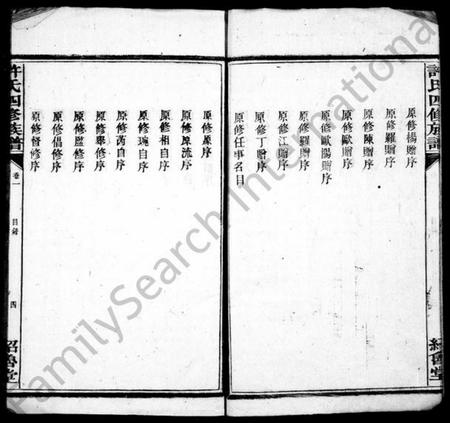 許氏四修族譜
紹魯堂
原修楊贈序
原修羅贈序
原修陳贈序
原修歐贈序
原修歐陽贈序
原修羅贈序
原修江贈序
原修丁贈序
原修任事名目
原修原序
原修原流序
原修相自序
原修琬自序
原修芮自序
原修舉修序
原修監修序
原修倡修序
原修督修序
許氏四修族譜
卷一
目錄
四
紹魯堂
FamilySearch International